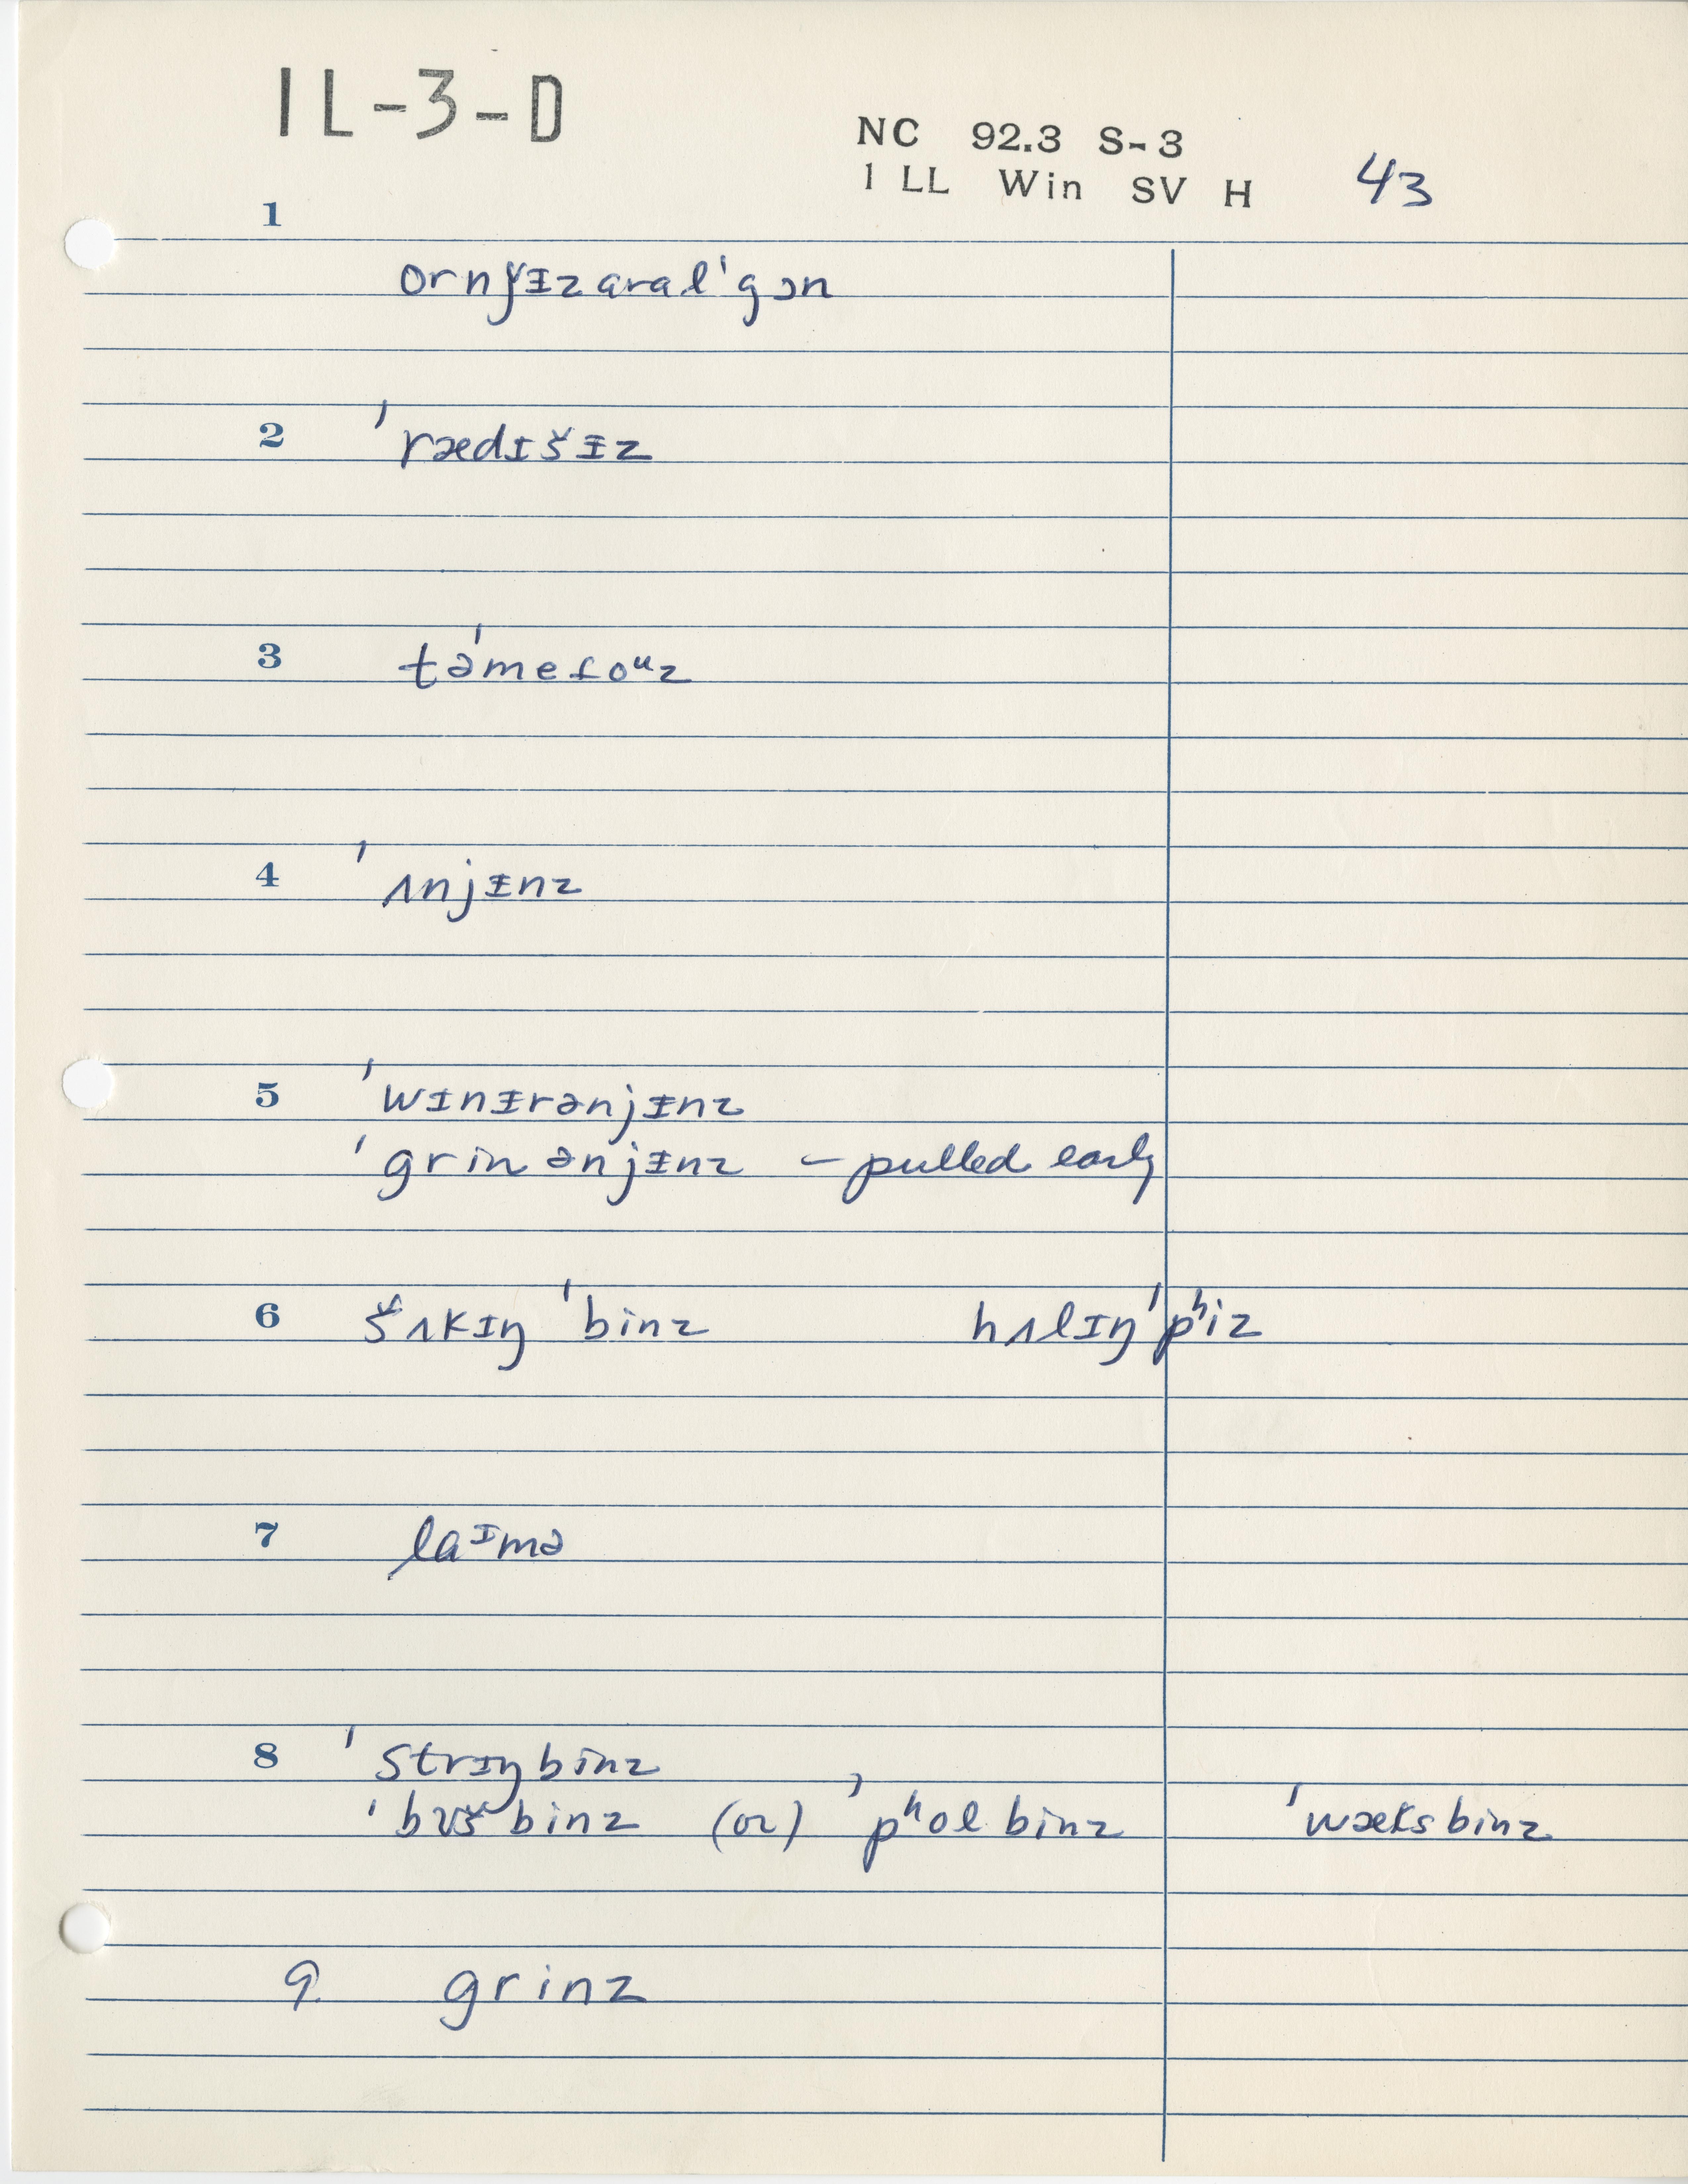 IL-3-D
NC 92.3 S-3
1 LL Win SV H 43
1
ornǰᵻzaral'gɔn
2 'rædɪšᵻz
3 tə'meɾoᵘz
4 'ʌnjᵻnz
5 'wɪnᵻrənjᵻnz
'grin ənjᵻnz – pulled early
6 šʌkɪŋ 'binz hʌlɪŋ 'pʰiz
7 laᶦmə
8 'strɪŋbinz
'bʊšbinz (or) 'pʰolbinz 'wæksbinz
9. grinz